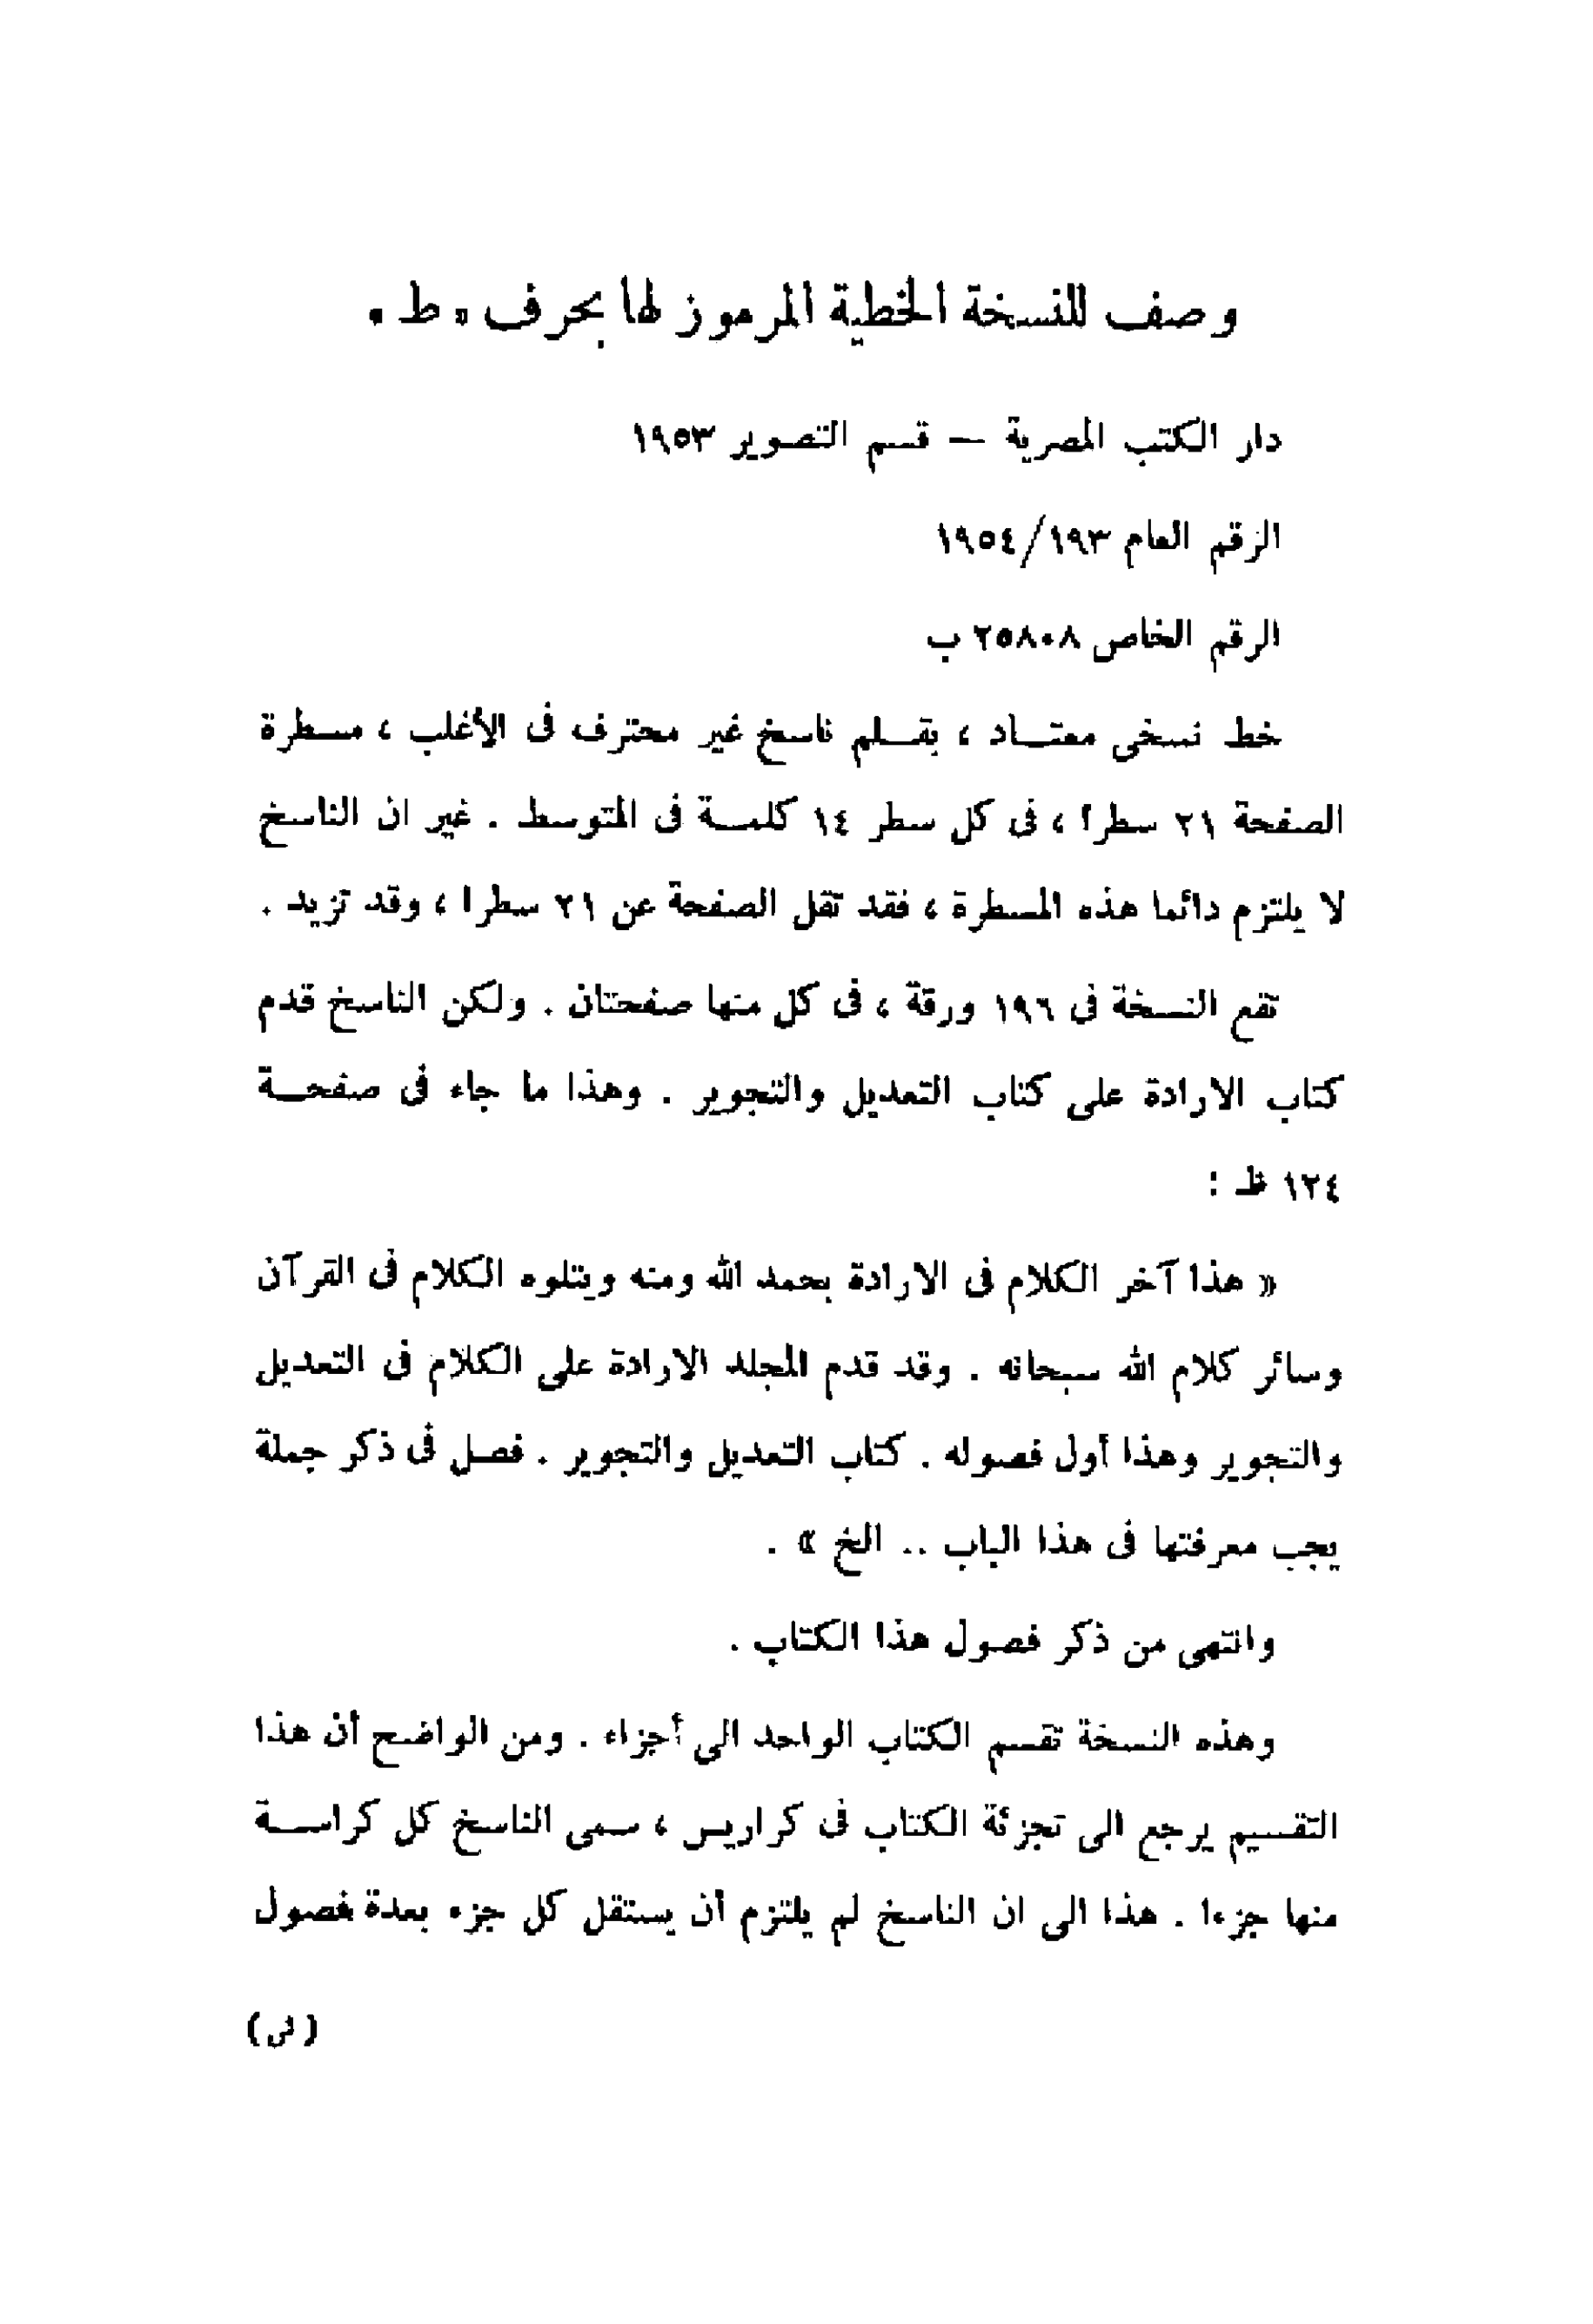 وصف للنسخة الخطية المرموز لها بحرف « ط »
دار الكتب المصرية — قسم التصوير ١٩٥٣
الرقم العام ١٩٣/١٩٥٤
الرقم الخاص ٢٥٨٠٨ ب
خط نسخى معتـاد ، بقـلم ناسخ غير محترف فى الأغلب ، مسطرة
الصفحة ٢١ سطرا ، فى كل سطر ١٤ كلمة فى المتوسط . غير ان الناسخ
لا يلتزم دائما هذه المسطرة ، فقد تقل الصفحة عن ٢١ سطرا ، وقد تزيد .
تقع النسخة فى ١٩٦ ورقة ، فى كل منها صفحتان . ولكن الناسخ قدم
كتاب الارادة على كتاب التعديل والتجوير . وهذا ما جاء فى صفحة
١٢٤ ظ :
« هذا آخر الكلام فى الارادة بحمد الله ومنه ويتلوه الكلام فى القرآن
وسائر كلام الله سبحانه . وقد قدم المجلد الارادة على الكلام فى التعديل
والتجوير وهذا أول فصوله . كتاب التعديل والتجوير . فصل فى ذكر جملة
يجب معرفتها فى هذا الباب .. الخ » .
وانتهى من ذكر فصول هذا الكتاب .
وهذه النسخة تقسم الكتاب الواحد الى أجزاء . ومن الواضح أن هذا
التقسيم يرجع الى تجزئة الكتاب فى كراريس ، سمى الناسخ كل كراسة
منها جزءا . هذا الى ان الناسخ لم يلتزم أن يستقل كل جزء بعدة فصول